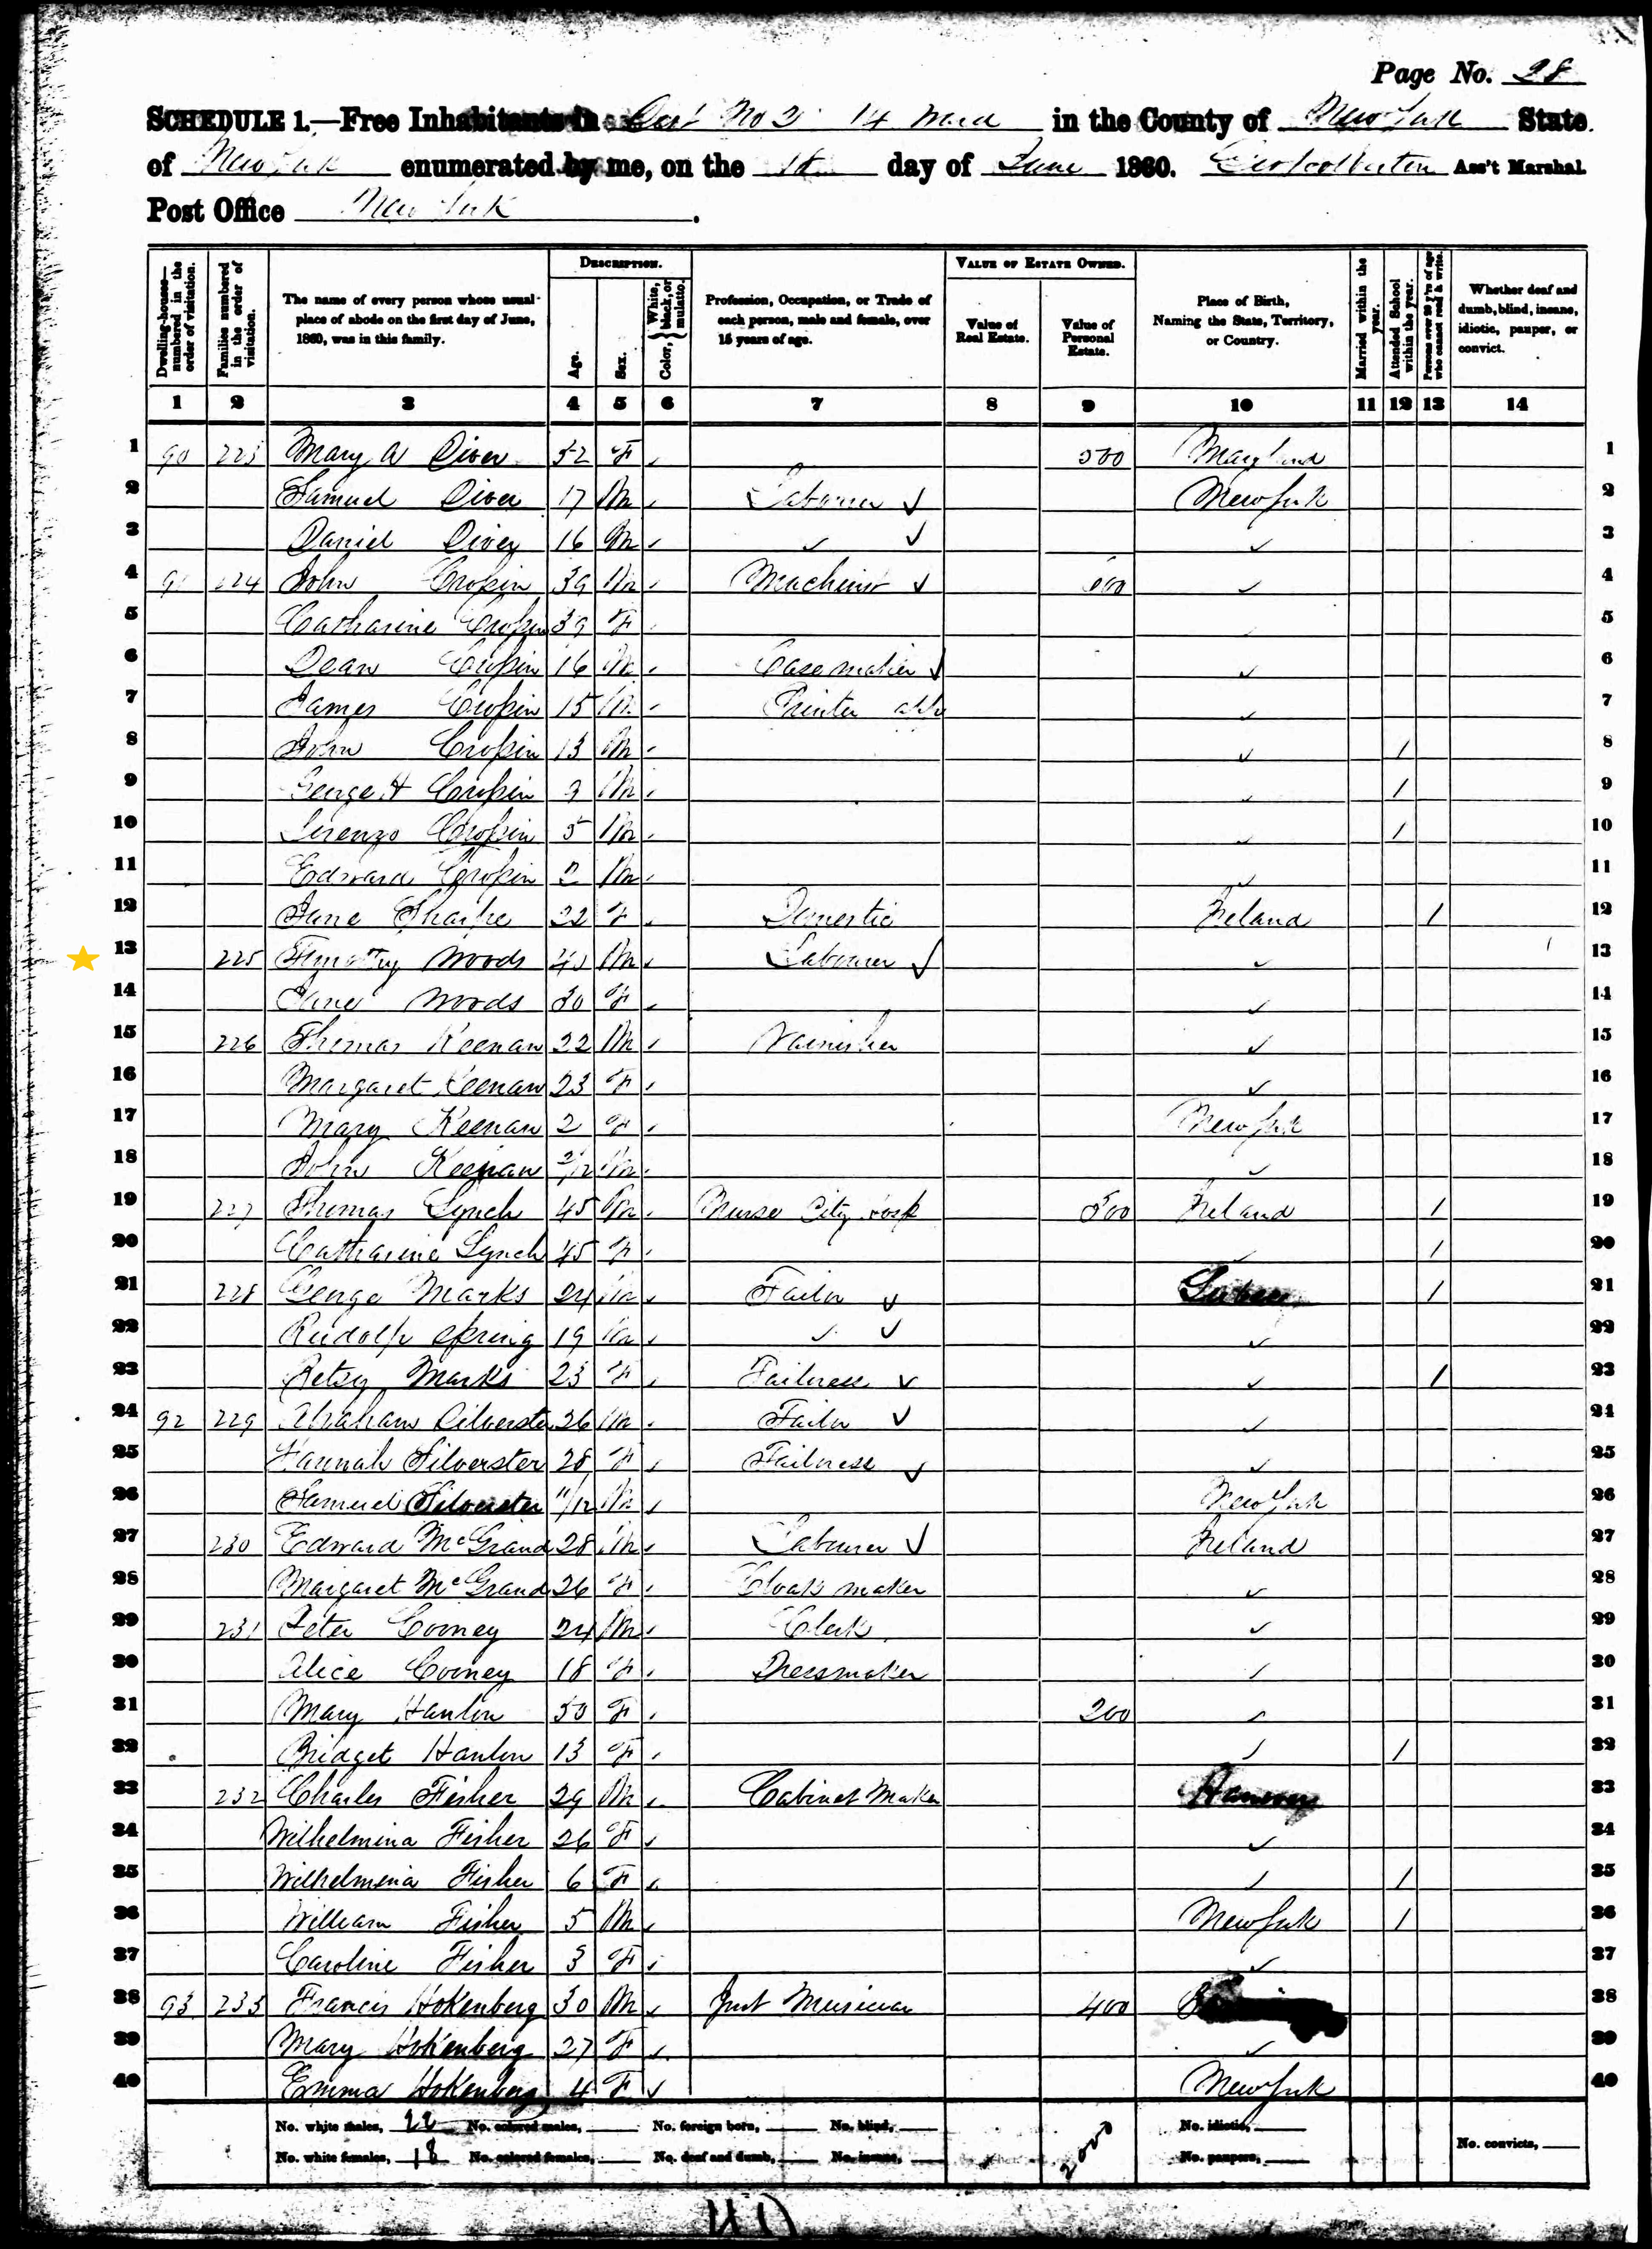 Page No. 28
SCHEDULE 1.—Free Inhabitants in Dist No 2 14 Ward in the County of New York State
of New York enumerated by me, on the day of June 1860. Ass't Marshal.
Post Office New York.
Dwelling-houses—numbered in the order of visitation.
Families numbered in the order of visitation.
The name of every person whose usual place of abode on the first day of June, 1860, was in this family.
DESCRIPTION.
Age.
Sex.
Color, { White, black, or mulatto.
Profession, Occupation, or Trade of each person, male and female, over 15 years of age.
VALUE OF ESTATE OWNED.
Value of Real Estate.
Value of Personal Estate.
Place of Birth, Naming the State, Territory, or Country.
Married within the year.
Attended School within the year.
Persons over 20 y'rs of age who cannot read & write.
Whether deaf and dumb, blind, insane, idiotic, pauper, or convict.
1 2 3 4 5 6 7 8 9 10 11 12 13 14
1 90 223 Mary A Diver 52 F Maryland 1
2 Samuel Diver 17 M Labourer ✓ New York 2
3 Daniel Diver 16 M ✓ ✓ ✓ 3
4 91 224 John Cropin 39 M Machinist ✓ ✓ 4
5 Catharine Cropin 39 F 5
6 Dean Cropin 16 M Case maker ✓ ✓ 6
7 James Cropin 15 M Printer ✓ 7
8 John Cropin 13 M ✓ 1 8
9 George H Cropin 9 M ✓ 1 9
10 Lorenzo Cropin 5 M ✓ 1 10
11 Edward Cropin 2 M ✓ 11
12 Jane Sharpe 22 F Domestic Ireland 1 12
13 225 Timothy Woods 40 M Labourer ✓ ✓ 13
14 Jane Woods 30 F ✓ 14
15 226 Thomas Keenan 22 M Varnisher ✓ 15
16 Margaret Keenan 23 F ✓ 16
17 Mary Keenan 2 F New York 17
18 John Keenan 2/12 M ✓ 18
19 227 Thomas Lynch 45 M Nurse City Hosp 500 Ireland 1 19
20 Catharine Lynch 45 F ✓ 1 20
21 228 George Marks 24 M Tailor ✓ 1 21
22 Rudolph Spring 19 M ✓ ✓ ✓ 22
23 Betsy Marks 23 F Tailoress ✓ ✓ 1 23
24 92 229 Abraham Silverster 26 M Tailor ✓ ✓ 24
25 Hannah Silverster 28 F Tailoress ✓ ✓ 25
26 Samuel Silverster 11/12 M New York 26
27 230 Edward McGrand 28 M Labourer ✓ Ireland 27
28 Margaret McGrand 26 F Cloak maker ✓ 28
29 231 Peter Cooney 24 M Clerk ✓ 29
30 Alice Cooney 18 F Dressmaker ✓ 30
31 Mary Hanlon 50 F 200 ✓ 31
32 Bridget Hanlon 13 F ✓ 1 32
33 232 Charles Fisher 29 M Cabinet Maker Hanover 33
34 Wilhelmina Fisher 26 F ✓ 34
35 Wilhelmina Fisher 6 F ✓ 1 35
36 William Fisher 5 M New York 1 36
37 Caroline Fisher 3 F ✓ 37
38 93 233 Francis Hokenberg 30 M Inst Musician 400 38
39 Mary Hokenberg 27 F ✓ 39
40 Emma Hokenberg 4 F New York 40
No. white males, 22 No. colored males, No. foreign born, No. blind, No. idiotic,
No. white females, 18 No. colored females, No. deaf and dumb, No. insane, 2000 No. paupers, No. convicts,